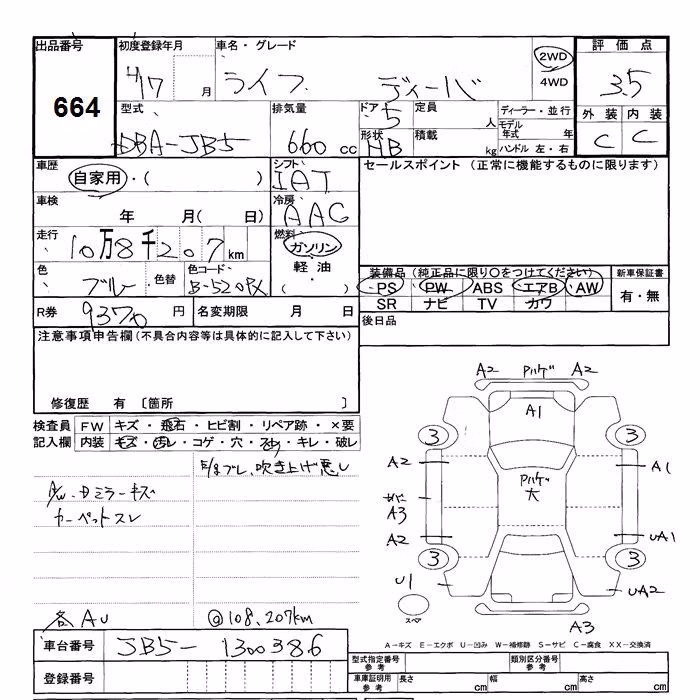 出品番号 初度登録年月 車名・グレード 2WD 評価点
664 H17 月 ライフ ディーバ 4WD 3.5
型式 排気量 ドア 5 定員 人 ディーラー・並行 外装 内装
DBA-JB5 660 cc 形状 HB 積載 kg モデル年式 年 ハンドル 左・右 C C
車歴 自家用・( ) シフト IAT セールスポイント (正常に機能するものに限ります)
車検 年 月( 日) 冷房 AAC
走行 10万8千207km 燃料 ガソリン
軽油
( )
色 ブルー ・色替 色コード B-520PX
装備品 (純正品に限り○をつけてください) 新車保証書
PS PW ABS エアB AW 有・無
SR ナビ TV カワ
R券 9370 円 名変期限 月 日 後日品
注意事項申告欄(不具合内容等は具体的に記入して下さい)
修復歴 有 〔箇所 〕
検査員 FW キズ・飛石・ヒビ割・リペア跡・×要
記入欄 内装 キズ・汚レ・コゲ・穴・スレ・キレ・破レ
吹き上げ悪し
A/W・Dミラーキズ
カーペットスレ
各AU @108,207km
A2 Pハゲ A2
A1
3 3
A2 A1
Pハゲ
大
A3
A2 UA1
3 3
U1 UA2
スペア A3
A-キズ E-エクボ U-凹み W-補修跡 S-サビ C-腐食 XX-交換済
車台番号 JB5-1300386
登録番号
型式指定番号 参考 類別区分番号 参考
車庫証明用 参考 長さ cm 幅 cm 高さ cm